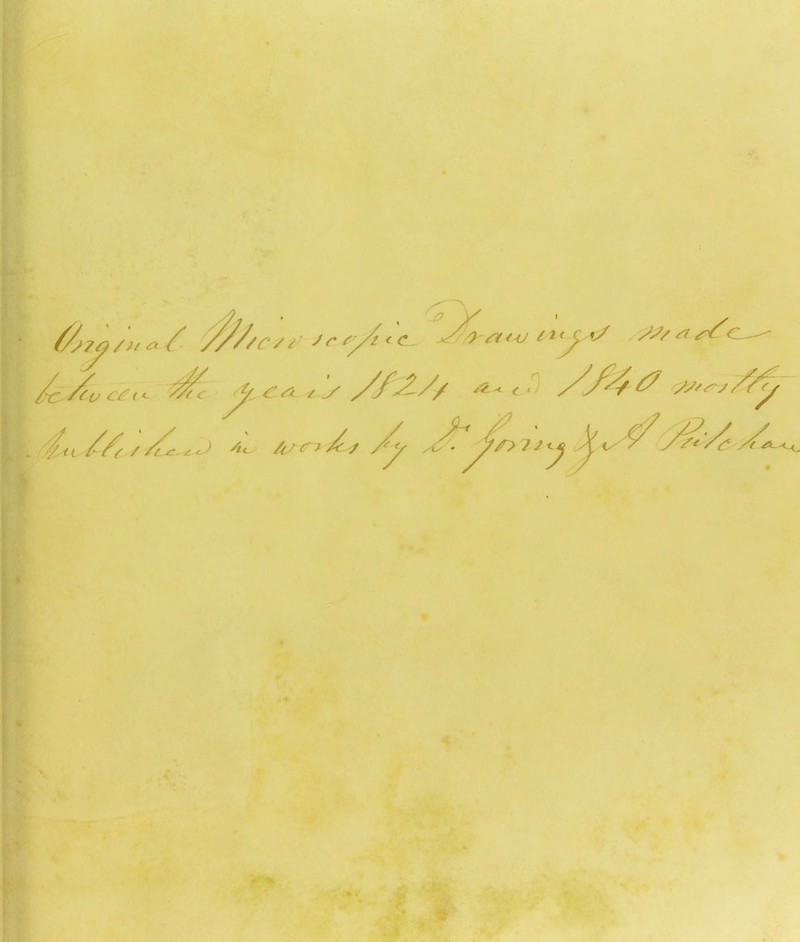 Original Microscopic Drawings made
between the years 1824 and 1840 mostly
published in works by Dr. Goring & A